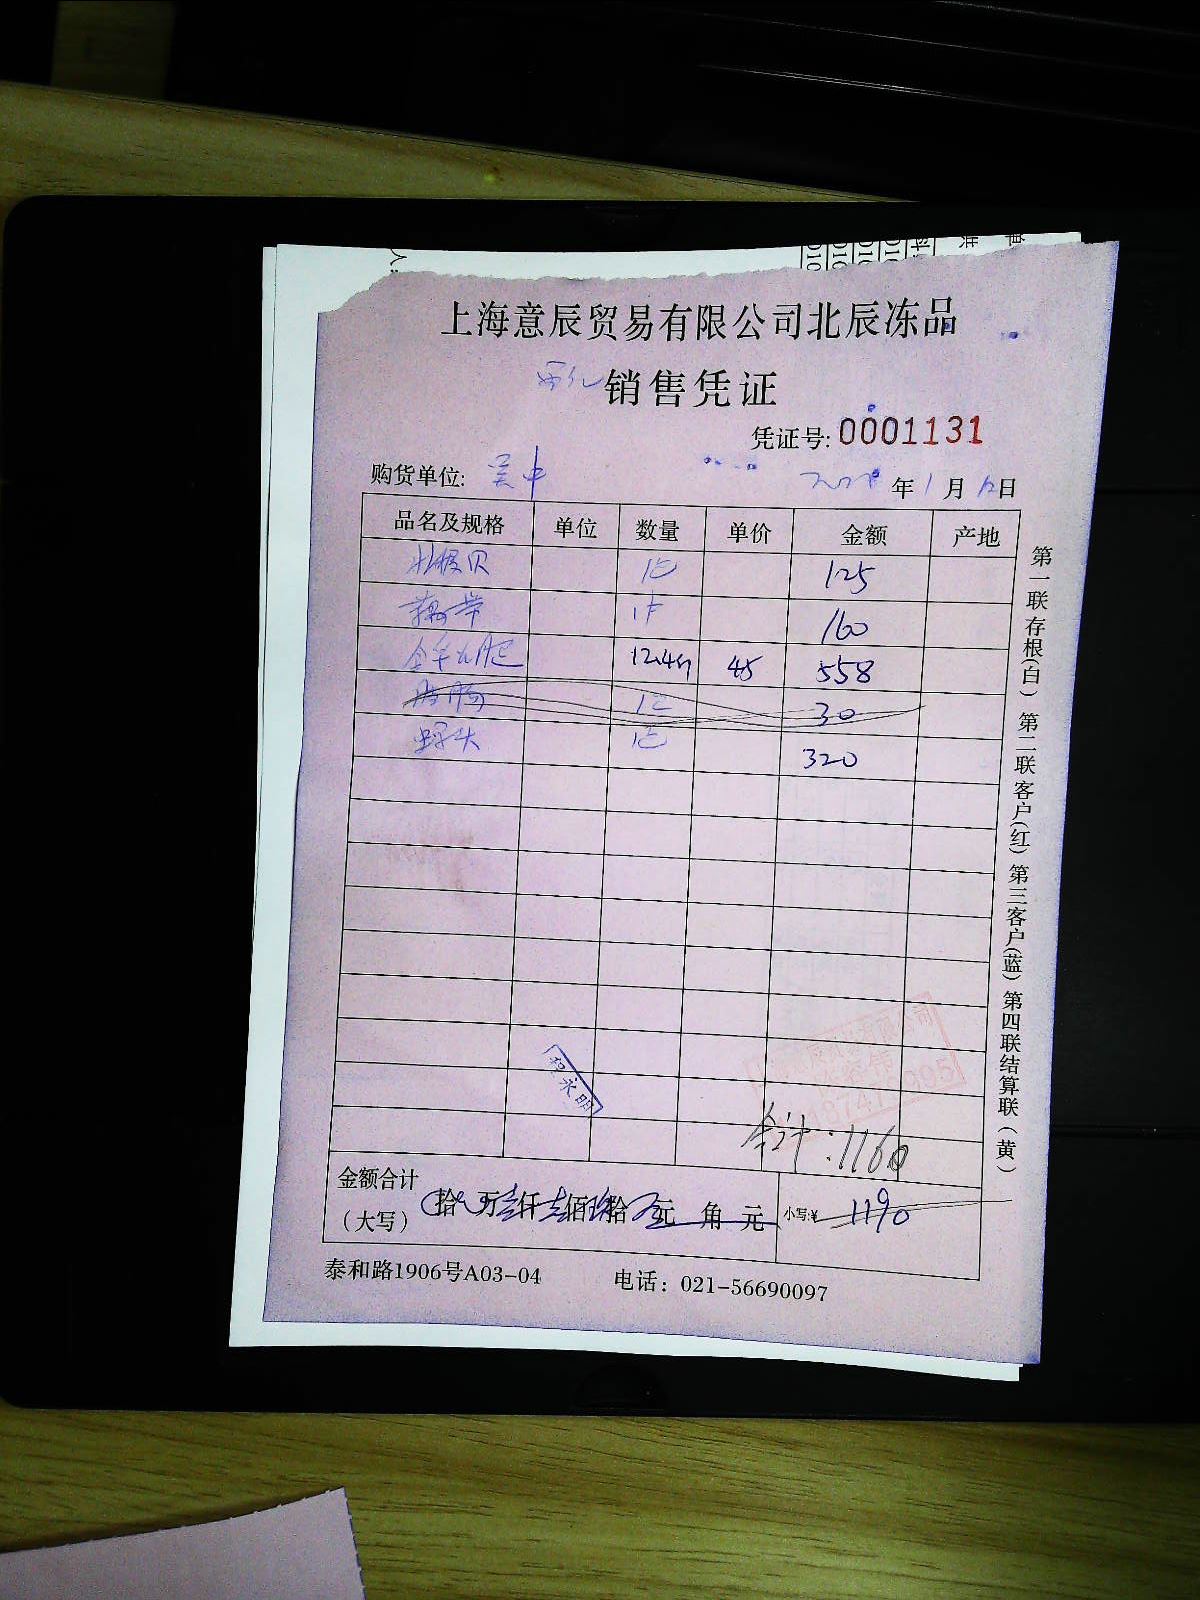 上海意辰贸易有限公司北辰冻品
销售凭证
凭证号: 0001131
购货单位: 吴中 年1月12日
品名及规格 单位 数量 单价 金额 产地
北极贝 1包 125
藕带 1件 160
全羊后腿 12.4斤 45 558
1包 30
螺头 1包 320
程永明
合计:1160
金额合计
(大写) 拾 万壹仟壹佰玖拾 元 角 元 小写:¥ 1190
泰和路1906号A03-04 电话: 021-56690097
第一联存根(白) 第二联客户(红) 第三客户(蓝) 第四联结算联(黄)